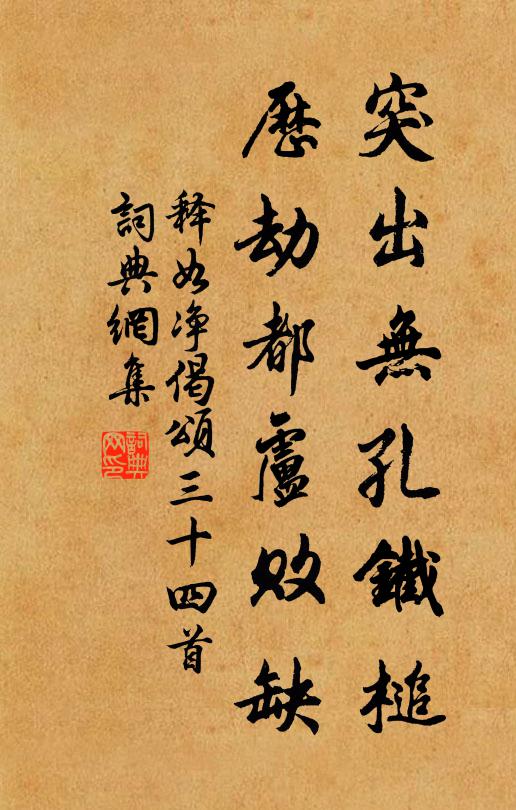 突出無孔鐵槌
歷劫都盧敗缺
释如净偈頌三十四首
詞典網集
詞典网印